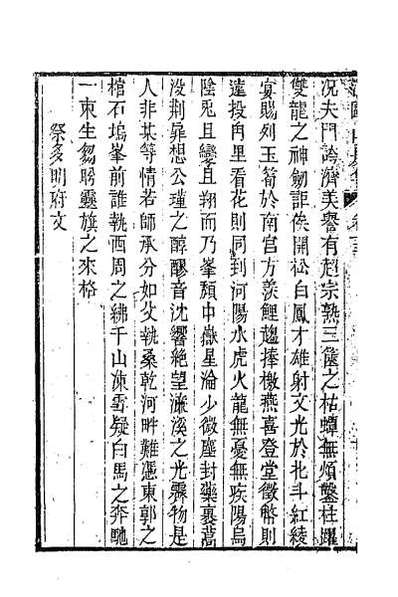 況夫門誇濟美譽有超宗熟三篋之枯蟫無煩鑿柱躍
雙龍之神劒詎俟開松白鳳才雄射文光於北斗紅綾
宴賜列玉筍於南宫方羡鯉趨捧檄燕喜登堂徵幣則
遠投冉里看花則同到河陽水虎火龍無憂無疾陽烏
陰兎且彎且翔而乃峯頽中嶽星淪少微塵封藥裹蒿
没荆扉想公瑾之醇醪音沈響絶望濂溪之光霽物是
人非某等情若師承分如父執桑乾河畔難憑東郭之
棺石塢峯前誰執西周之紼千山凍雪疑白馬之奔馳
一束生芻盻靈旗之來格
祭多明府文